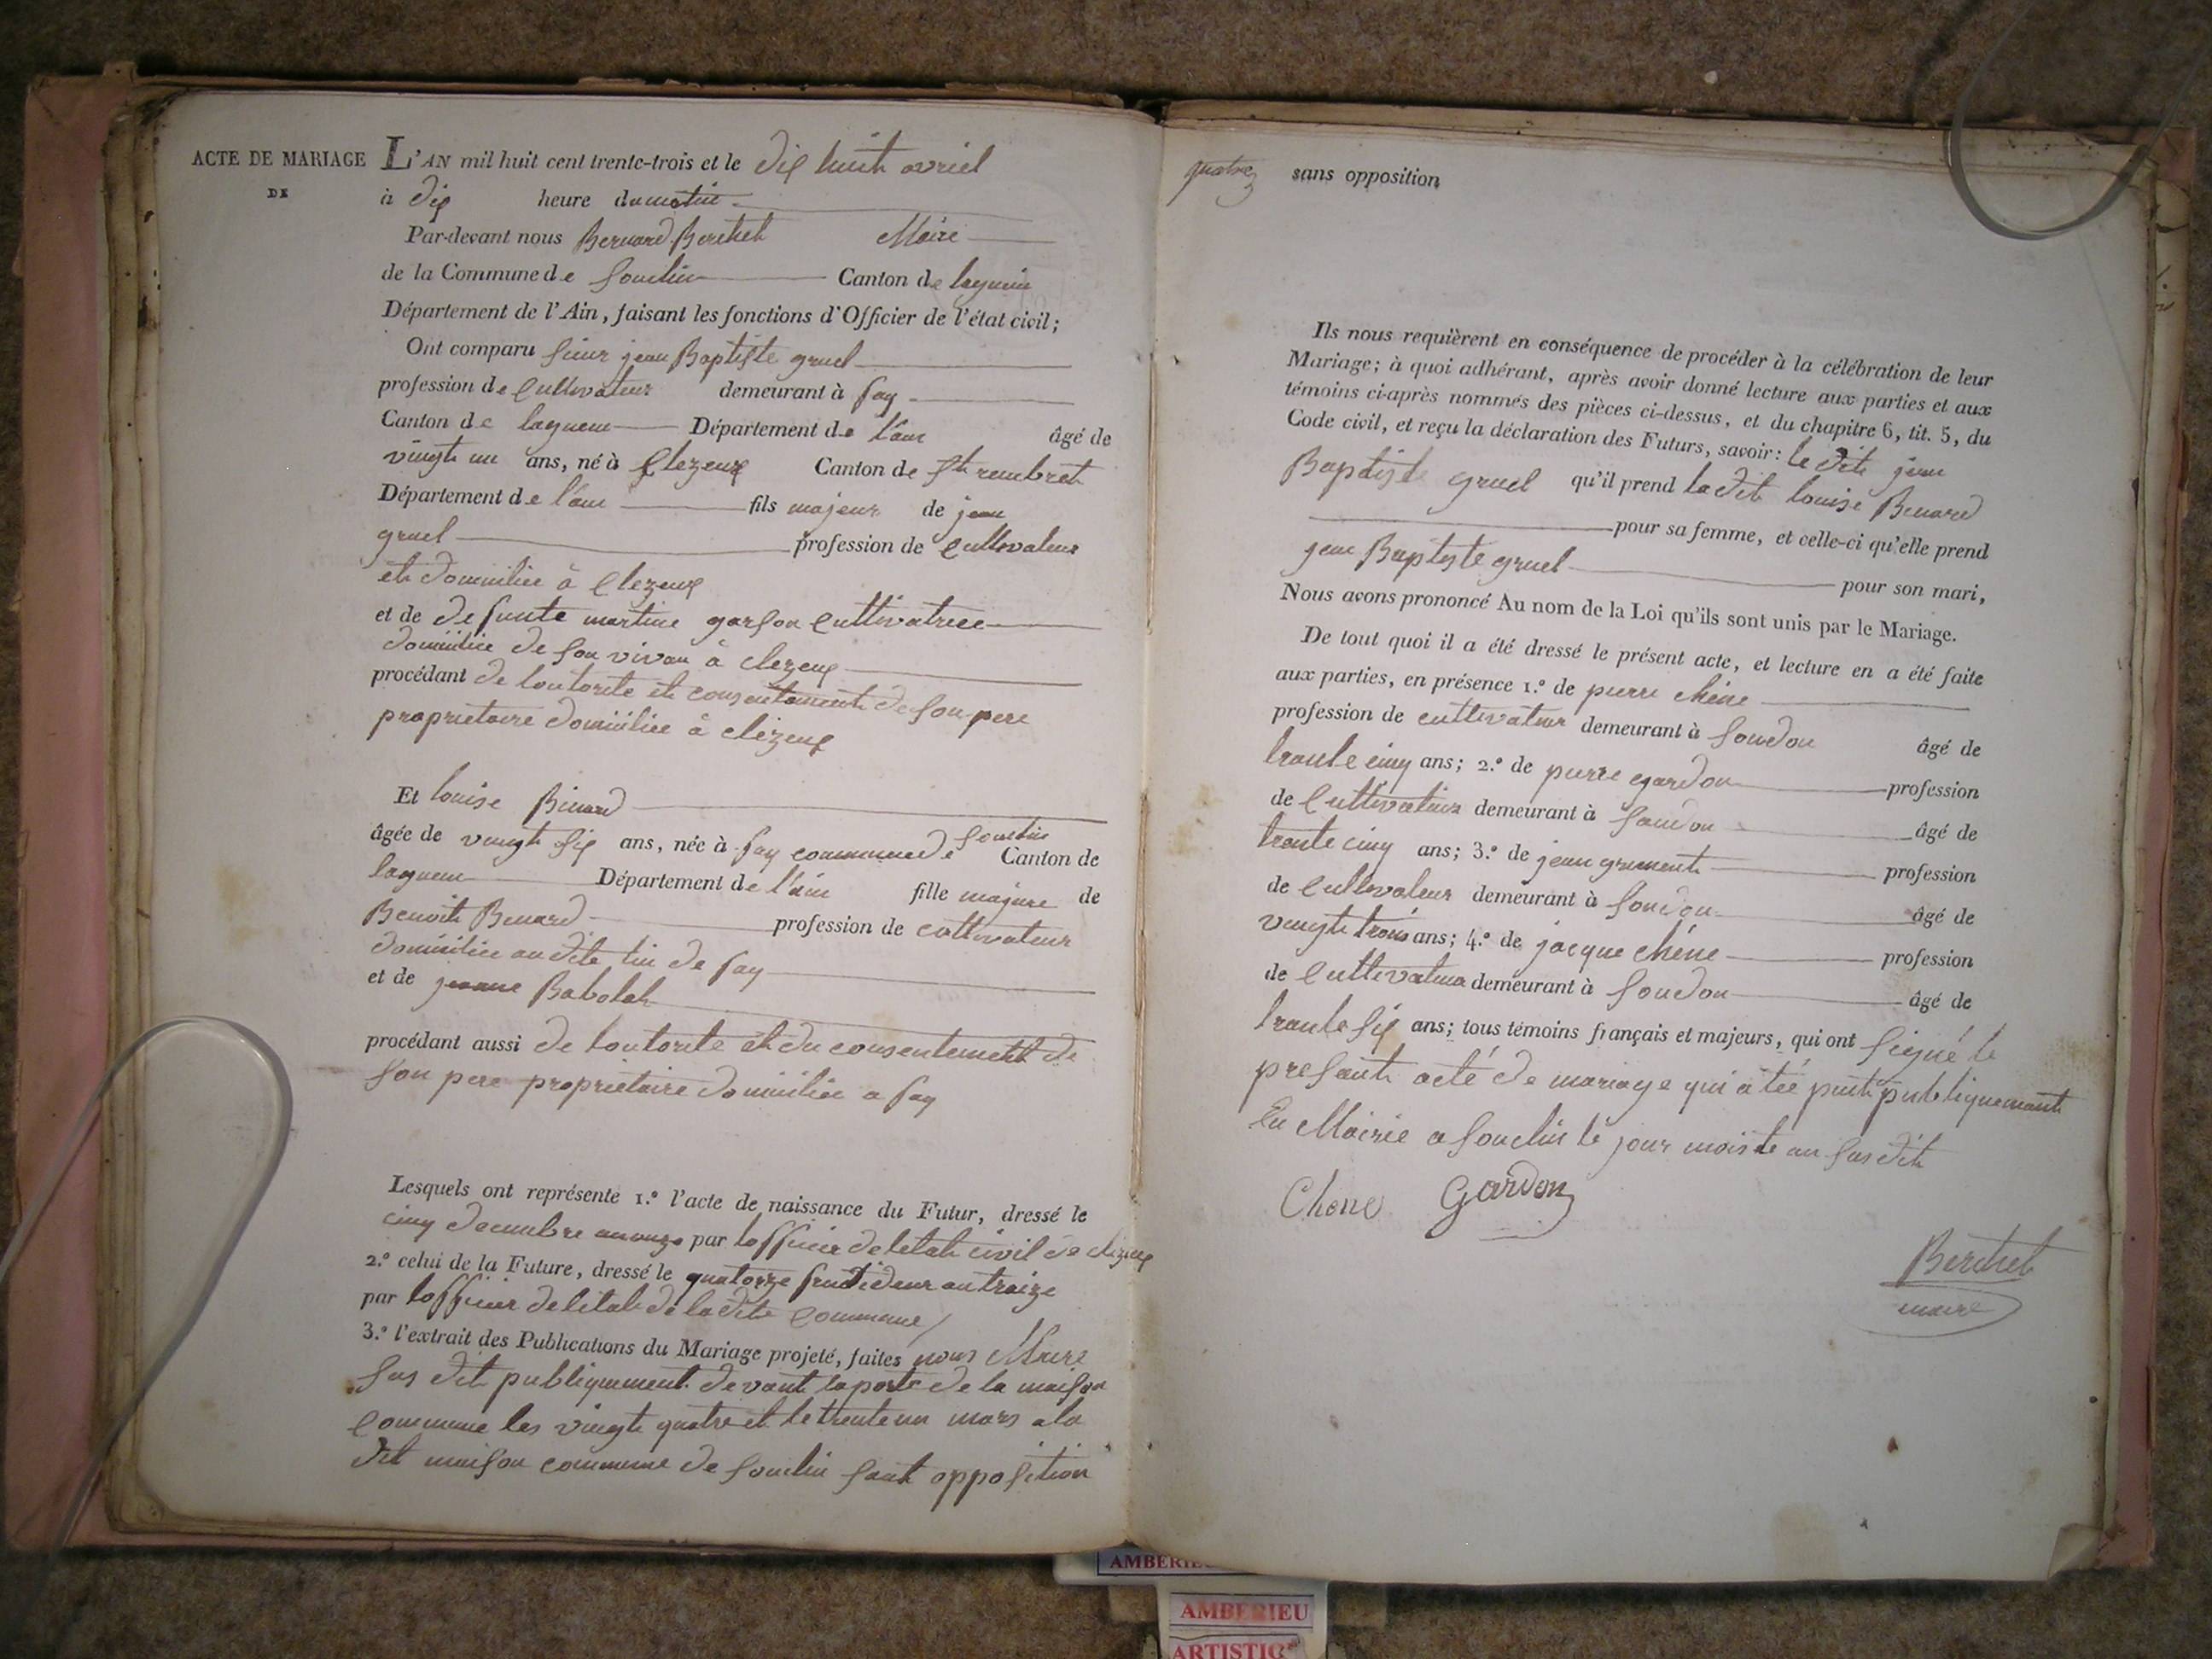 ACTE DE MARIAGE
DE
L'AN mil huit cent trente-trois et le dix huit avriel
à dix heure du matin
Par-devant nous Bernard Berthet Maire
de la Commune de souclin Canton de lagnieu
Département de l'Ain, faisant les fonctions d'Officier de l'état civil;
Ont comparu sieur jean Baptiste gruel
profession de cultivateur demeurant à fay
Canton de lagnieu Département de l'ain âgé de
vingt un ans, né à Clezeux Canton de st rembret
Département de l'ain fils majeur de jean
gruel profession de cultivateur
et domicilie à Clezeux
et de defunte martine garson cultivatrice
domicilie de son vivan à clezeux
procédant de loutorite et consentement de son pere
proprietaire domicilie à clezeux
Et louise Binard
âgée de vingt six ans, née à fay commune de souclin Canton de
lagnieu Département de l'ain fille majure de
Benoit Benard profession de cultivateur
domicilie audit lin de fay
et de jeanne Babolat
procédant aussi de loutorite et du consentement de
son pere proprietaire domicilie a fay
Lesquels ont représente 1.° l'acte de naissance du Futur, dressé le
cinq decembre an onze par lofficier de letat civil de clezeux
2.° celui de la Future, dressé le quatorze fructideur an traize
par lofficier de letat de la dite commune
3.° l'extrait des Publications du Mariage projeté, faites nous Maire
sus dit publiquement devant la porte de la maison
commune les vingt quatre et le trente un mars a la
dit maison commune de souclin sant opposition
quatre sans opposition
Ils nous requièrent en conséquence de procéder à la célébration de leur
Mariage; à quoi adhérant, après avoir donné lecture aux parties et aux
témoins ci-après nommés des pièces ci-dessus, et du chapitre 6, tit. 5, du
Code civil, et reçu la déclaration des Futurs, savoir: le dit jean
Baptiste gruel qu'il prend la dit louise Benard
pour sa femme, et celle-ci qu'elle prend
jean Baptiste gruel pour son mari,
Nous avons prononcé Au nom de la Loi qu'ils sont unis par le Mariage.
De tout quoi il a été dressé le présent acte, et lecture en a été faite
aux parties, en présence 1.° de pierre chêne
profession de cultivateur demeurant à soudon âgé de
trante cinq ans; 2.° de pierre gardon profession
de cultivateur demeurant à soudon âgé de
trante cinq ans; 3.° de jean grument profession
de cultivateur demeurant à soudon âgé de
vingt trois ans; 4.° de jacque chêne profession
de cultivateur demeurant à soudon âgé de
trante six ans; tous témoins français et majeurs, qui ont signé le
presant acté de mariage qui a téé publiquemant
En Mairie a souclin le jour mois et an sus dit
Chene Gardon
Berthet
maire
AMBERIEU
AMBERIEU
ARTISTIC